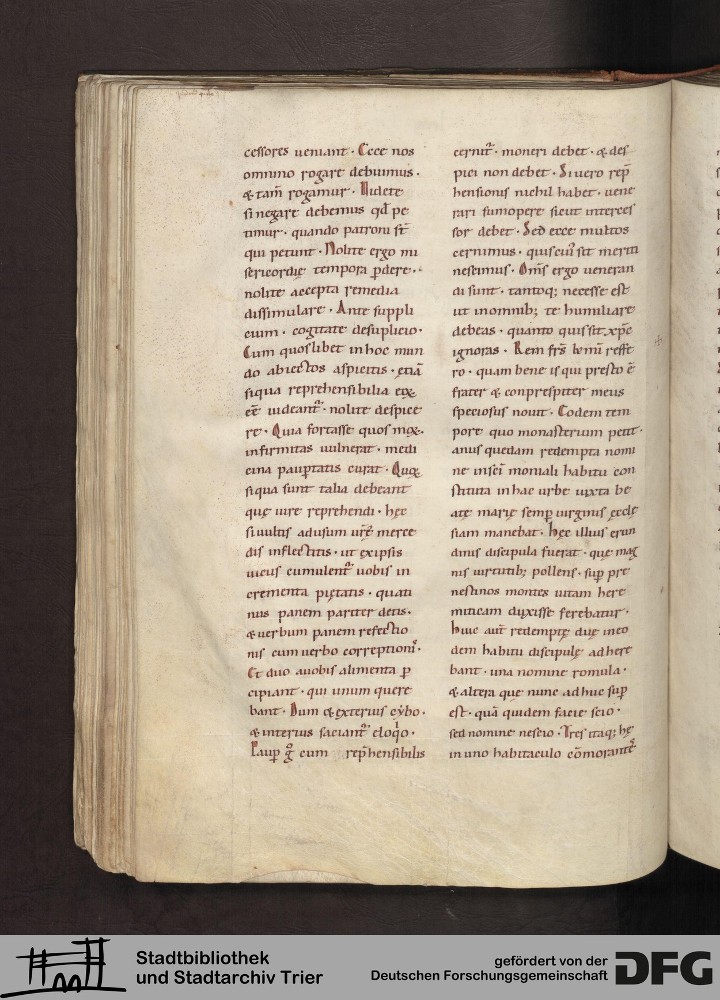 cessores ueniant · Ecce nos
omnino rogare debuimus ·
& tam̄ rogamur · Uidete
si negare debemus qđ pe
timur · quando patroni st̄
qui petunt · Nolite ergo mi
sericordię tempora ꝑdere ·
nolite accepta remedia
dissimulare · Ante suppli
cium · cogitate desuplicio ·
Cum quoslibet in hoc mun
do abiectos aspicitis · etiā
siqua reprehensibilia eoꝝ
eē uideant᷑ · nolite despice
re · Quia fortasse quos
infirmitas uulnerat · medi
cina paupertatis curat ·
siqua sunt talia debeant
quę iure reprehendi · hęc
si uultis ad usum ur̄ę merce
dis inflectitis · ut ex ipsis
uicus cumulent᷑ uobis in
crementa pietatis · quati
nus panem pariter detis ·
& uerbum panem refectio
nis cum uerbo correptionis ·
Et duo a uobis alimenta ꝑ
cipiant · qui unum quere
bant · Dum & exterius cybo ·
& interius saciant᷑ eloq̇o ·
Paup g̊ cum rep̄hensibilis
cernit᷑ · moneri debet · & des
pici non debet · Si uero rep̄
hensionis nichil habet · uene
rari sumopere sicut interces
sor debet · Sed ecce multos
cernimus · quis cui᷒ sit meriti
nescimus · Om̄s ergo ueneran
di sunt · tantoq; necesse est
ut in omnib; te humiliare
debeas · quanto quis sit xp̄c
ignoras · Rem fr̄s kmi refe
ro · quam bene is qui presto ē
frater & conpresbiter meus
speciosus nouit · Eodem tem
pore quo monasterium petii ·
anus quedam redempta nomi
ne in sc̄i moniali habitu con
stituta in hac urbe iuxta be
atę marię semꝑ uirginis ęccle
siam manebat · hęc illius erun
dinis discipula fuerat · quę mag
nis uirtutib; pollens · suꝑ pre
nestinos montes uitam here
miticam duxisse ferebatur ·
huic aut̄ redemptę duę in eo
dem habitu discipulę adhere
bant · una nomine romula ·
& altera que nunc adhuc sup
est · quā quidem facie scio ·
sed nomine nescio · Tres itaq; hę
in uno habitaculo cōmorantes
Stadtbibliothek
und Stadtarchiv Trier
gefördert von der
Deutschen Forschungsgemeinschaft
DFG